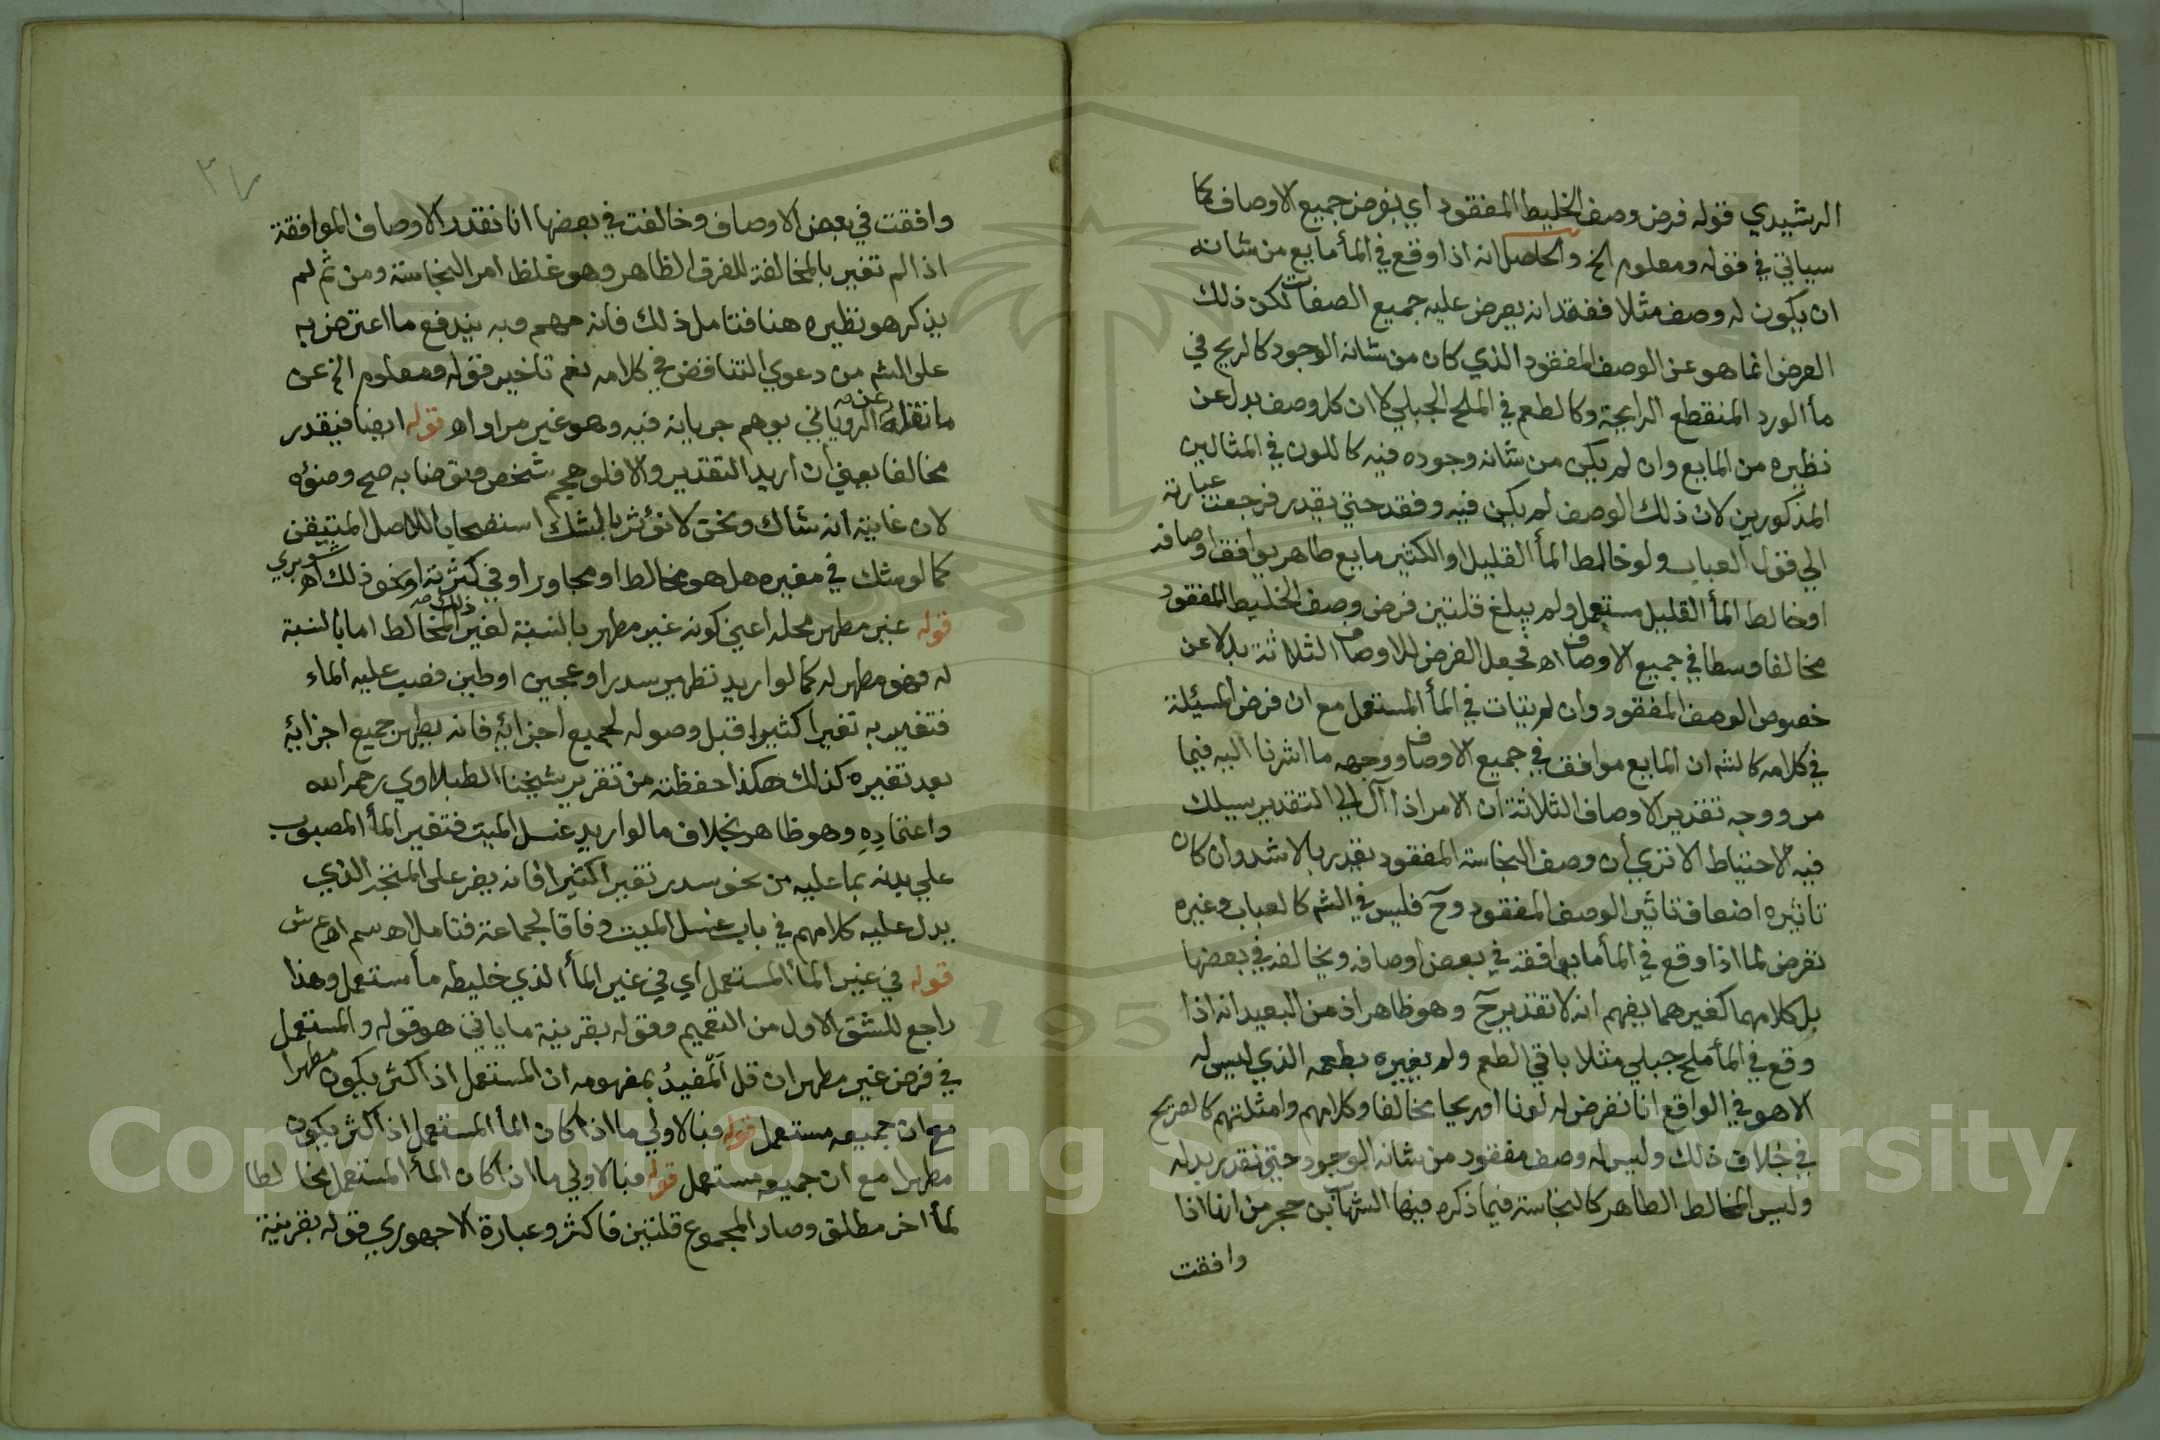 الرشيدي قوله فرض وصف الخليط المفقود اي يفرض جميع الاوصاف كما
سياتي في قوله ومعلوم الخ والحاصل انه اذا وقع في الماء مايع من شانه
ان يكون له وصف مثلا ففقد انه يعرض عليه جميع الصفات لكن ذلك
العرض انما هو عن الوصف المفقود الذي كان من شانه الوجود كالريح في
مأ الورد المنقطع الرايحة وكالطعم في الملح الجبلي لا ان كل وصف بدل عن
نظيره من المايع وان لم يكن من شانه وجوده فيه كاللون في المثالين
المذكورين لان ذلك الوصف لم يكن فيه وفقد حتي يقدر فرجعت عبارته
الي قول العباب ولو خالط المأ القليل او الكثير مايع طاهر يوافق اوصافه
او خالط المأ القليل مستعمل ولم يبلغ قلتين فرض وصف الخليط المفقود
مخالفا وسطا في جميع الاوصاف اه فجعل الفرض للاوصاف الثلاثة بدلا عن
خصوص الوصف المفقود وان لم يتات في المأ المستعمل مع ان فرض المسئلة
في كلامه كالشم ان المايع موافق في جميع الاوصاف ووجهه ما اشرنا اليه فيما
مر ووجه تقدير الاوصاف الثلاثة ان الامر اذا آل الي التقدير سيلك
فيه الاحتياط الا تري ان وصف النجاسة المفقود يقدر بالاشد وان كان
تاثيره اضعاف تاثير الوصف المفقود وح فليس في الشم كالعباب وغيره
تفرض لما اذا وقع في المأ ما يوافقه في بعض اوصافه ويخالفه في بعضها
بل كلامهما كغيرهما يفهم انه لا تقدير ح وهو ظاهر اذ من البعيد انه اذا
وقع في المأ ملح جبلي مثلا باقي الطعم ولم يغيره بطعمه الذي ليس له
الا هو في الواقع انا نفرض له لونا او ريحا مخالفا وكلامهم وامثلتهم كالصريح
في خلاف ذلك وليس له وصف مفقود من شانه الوجود حتي نقدر بدله
وليس المخالط الطاهر كالنجاسة فيما ذكره فيها الشهاب بن حجر من انها اذا
وافقت
٣٧
وافقت في بعض الاوصاف وخالفت في بعضها انا نقدر الاوصاف الموافقة
اذا لم تغير بالمخالفة للفرق الظاهر وهو غلظ امر النجاسة ومن ثم لم
يذكر هو نظيره هنا فتامل ذلك فانه مهم وبه يندفع ما اعترض به
علي الشم من دعوي التناقض في كلامه نعم تاخير قوله ومعلوم الخ عن
ما نقله عن الروياني يوهم جريانه فيه وهو غير مراد اه قوله ايضا فيقدر
مخالفا يعني ان اريد التقدير والا فلو هجم شخص وتوضا به صح وضوءه
لان غايته انه شاك ونحن لا نؤثر بالشك استصحابا للاصل المتيقن
كما لو شك في مغيره هل هو مخالط او مجاور او في كثرته او نحو ذلك اه شوبري
قوله غير مطهر محله اعني كونه غير مطهر بالنسبة لغير ذلك المخالط اما بالنسبة
له فهو مطهر له كما لو اريد تطهير سدر او عجين او طين فصب عليه الماء
فتغير به تغيرا كثيرا قبل وصوله لجميع اجزائه فانه يطهر جميع اجزائه
بعد تغيره كذلك هكذا حفظته من تقرير شيخنا الطبلاوي رحمه الله
واعتماده وهو ظاهر بخلاف ما لو اريد غسل الميت فتغير المأ المصبوب
علي بدنه بما عليه من نحو سدر تغيرا كثيرا فانه يضر علي المتجه الذي
يدل عليه كلامهم في باب غسل الميت وفاقا لجماعة فتامل اه سم اه ع ش
قوله في غير المأ المستعمل اي في غير المأ الذي خليطه مأ مستعمل وهذا
راجع للشق الاول من التعميم وقوله بقرينة ما ياتي هو قوله والمستعمل
في فرض غير مطهر ان قل المفيد بمفهومه ان المستعمل اذا كثر يكون مطهرا
مع ان جميعه مستعمل قوله فبالاولي ما اذا كان المأ المستعمل اذا كثر يكون
مطهرا مع ان جميعه مستعمل قوله فبالاولي ما اذا كان المأ المستعمل مخالطا
لمأ اخر مطلق وصار المجموع قلتين فاكثر وعبارة الاجهوري قوله بقرينة
195
Copyright © King Saud University